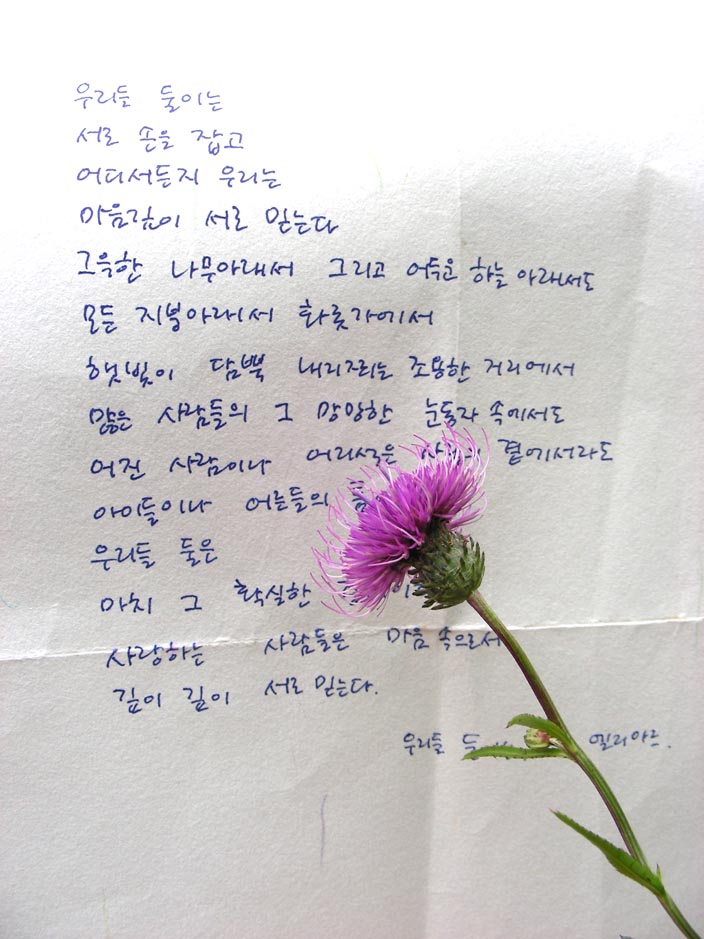 우리들 둘이는
서로 손을 잡고
어디서든지 우리는
마음깊이 서로 믿는다
그윽한 나무아래서 그리고 어두운 하늘 아래서도
모든 지붕아래서 화롯가에서
햇빛이 담뿍 내리쬐는 조용한 거리에서
많은 사람들의 그 망망한 눈동자 속에서도
어진 사람이나 어리석은 곁에서라도
아이들이나 어른들의
우리들 둘은
마치 그 확실한
사랑하는 사람들은 마음 속으로서
깊이 깊이 서로 믿는다.
우리들 엘리아르.